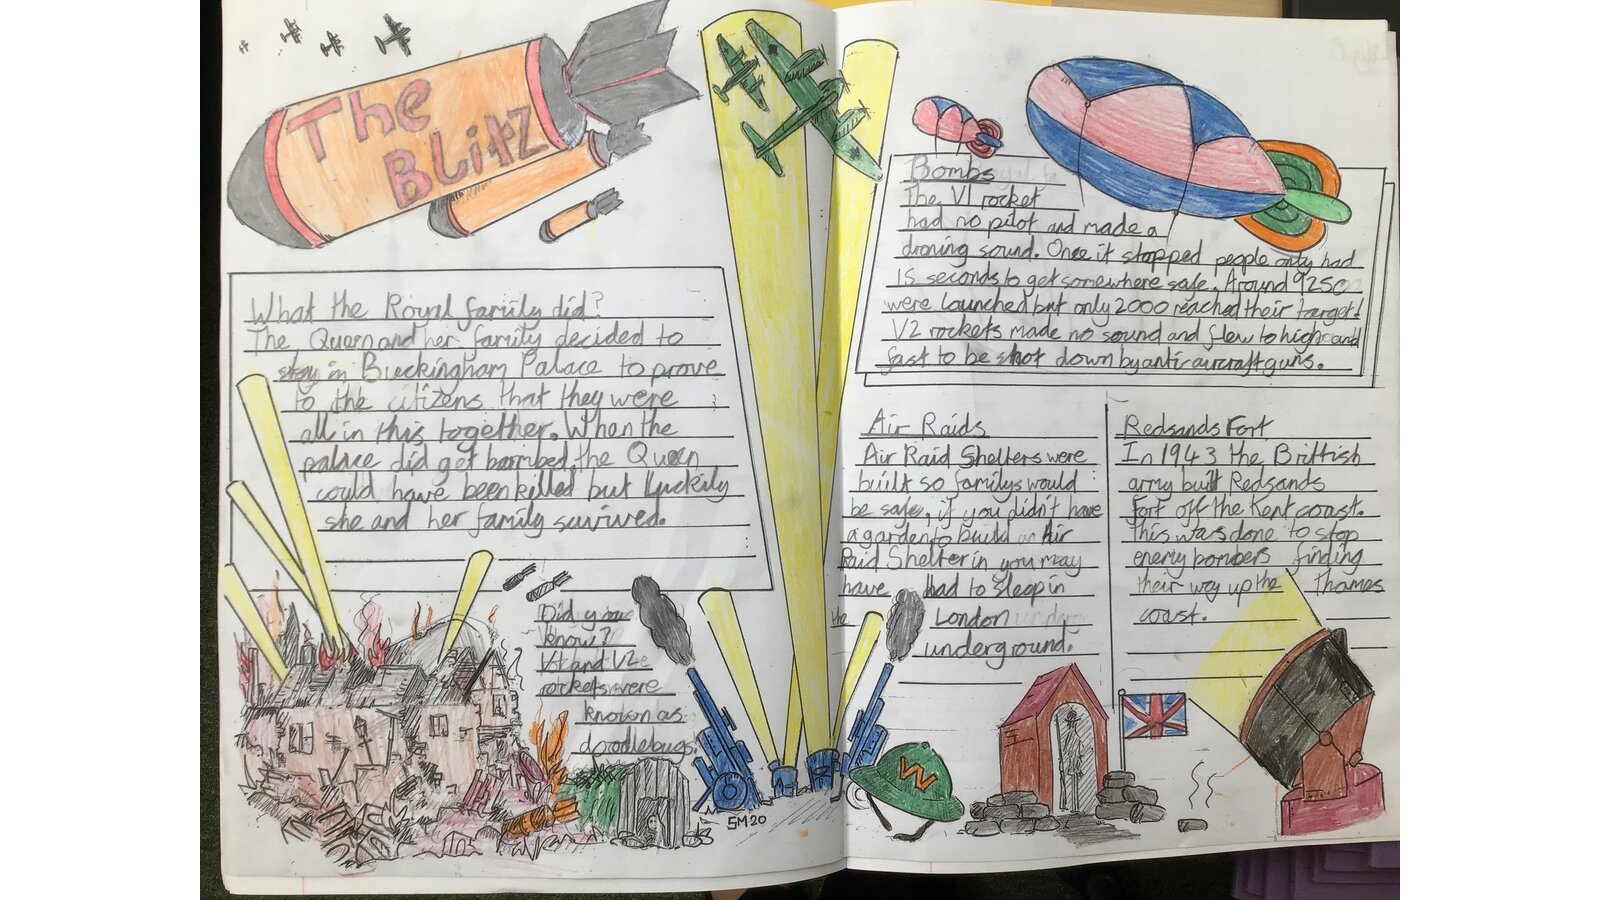 The
Blitz
What the Royal family did?
The Queen and her family decided to
stay in Buckingham Palace to prove
to the citizens that they were
all in this together. When the
palace did get bombed, the Queen
could have been killed but luckily
she and her family survived.
Did you
know?
V1 and V2
rockets were
known as
doodlebugs!
5M20
Bombs
The V1 rocket
had no pilot and made a
droning sound. Once it stopped people only had
15 seconds to get somewhere safe. Around 9250
were launched but only 2000 reached their target!
V2 rockets made no sound and flew to high and
fast to be shot down by anti-aircraft guns.
Air Raids
Air Raid Shelters were
built so familys would
be safe, if you didn't have
a garden to build an Air
Raid Shelter in you may
have had to sleep in
the London
underground.
Redsands Fort
In 1943 the Brittish
army built Redsands
Fort off the Kent coast.
This was done to stop
enemy bombers finding
their way up the Thames
coast.
W